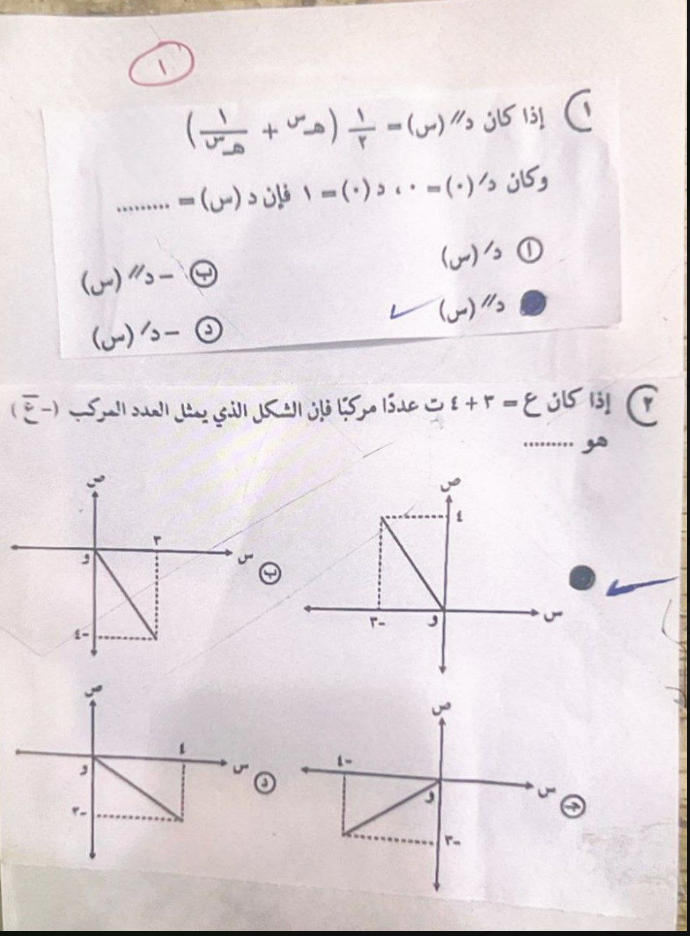 ١
١) إذا كان د//(س) = ١/٢ (هـ^س + ١/هـ^س)
وكان د/(٠) = ٠ ، د(٠) = ١ فإن د(س) = .........
أ د/(س)
ب − د//(س)
د//(س)
د − د/(س)
٢) إذا كان ع = ٣ + ٤ ت عددًا مركبًا فإن الشكل الذي يمثل العدد المركب (− ع̄)
هو .........
ص
٤
س
٣-
و
ب
ص
٣
س
و
٤-
جـ
ص
٤-
س
و
٣-
د
ص
٤
س
و
٣-